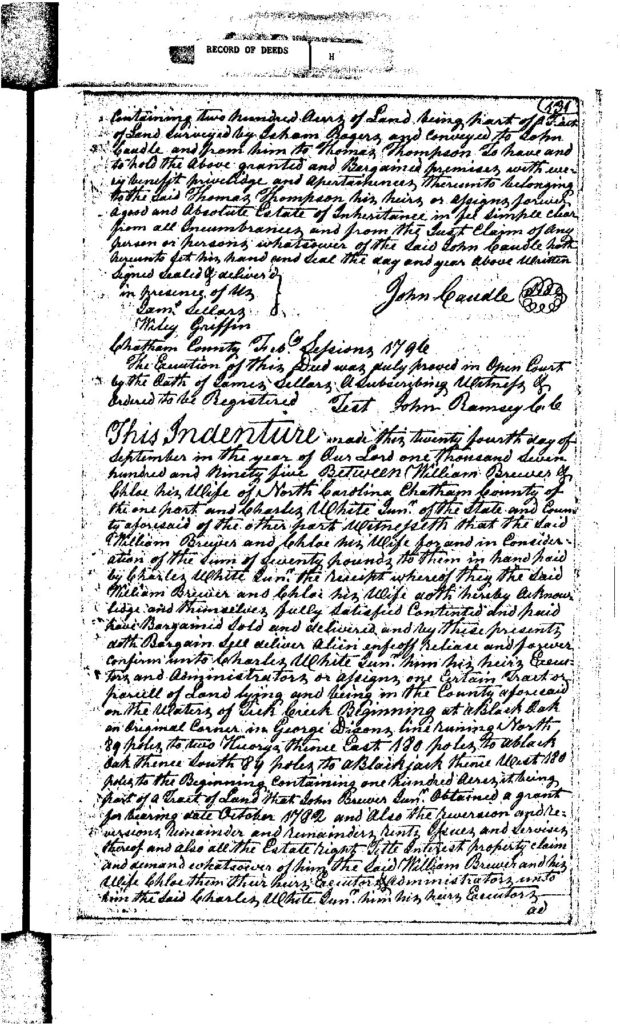 RECORD OF DEEDS H
131
Containing two hundred Acres of Land being part of a Tract
of Land Surveyed by Isham Rogers and Conveyed to John
Caudle and from him to Thomas Thompson To have and
to hold the above granted and Bargained premises with eve-
ry benefit priviledge and apertainences thereunto belonging
to the Said Thomas Thompson his heirs or assigns forever
a good and Absolute Estate of Inheritance in fee Simple Clear
from all Incumbrances and from the Just Claim of Any
person or persons whatsower of the Said John Caudle hath
hereunto Set his hand and Seal the day and year above Written
Signed Sealed & deliver'd
in presence of Us John Caudle Seal
Jams. Sellars
Wiley Griffin
Chatham County Feby. Sessions 1796
The Execution of this Deed was duly proved in Open Court
by the Oath of James Sellars A Subscribing Witness &
Ordered to be Registered Test John Ramsey C.C
This Indenture made this twenty fourth day of
September in the year of Our Lord one thousand Seven
hundred and Ninety five Between William Brewer &
Chloe his Wife of North Carolina Chatham County of
the one part and Charles White Junr. of the State and Coun-
ty aforesaid of the other part Witnesseth that the Said
William Brewer and Chloe his Wife for and in Consider-
ation of the Sum of Seventy pounds to them in hand paid
by Charles White Junr. the Receipt whereof they the Said
William Brewer and Chloe his Wife doth hereby Acknow-
ledge and themselves fully Satisfied Contented and paid
have Bargained Sold and delivered and by these presents
doth Bargain Sell deliver Alien enfeoff release and forever
Confirm unto Charles White Junr. him his heirs Execu-
tors and Administrators or assigns one Certain Tract or
parcill of Land lying and being in the County aforesaid
on the Waters of Tick Creek Beginning at a Black Oak
an Original Corner in George Dixons line runing North
89 poles to two Hicorys thence East 180 poles to a black
Oak thence South 89 poles to a Blackjack thence West 180
poles to the Beginning Containing one hundred Acres it being
part of a Tract of Land that John Brewer Junr. Obtained a grant
for bearing date October 1782 and Also the reversion and re-
versions remainder and remainders rents Issues and Services
thereof and also all the Estate right Title Interest property claim
and demand whatsower of him the Said William Brewer and his
Wife Chloe them their heirs Executors & Administrators unto
him the Said Charles White Junr. him his heirs Executors
ad